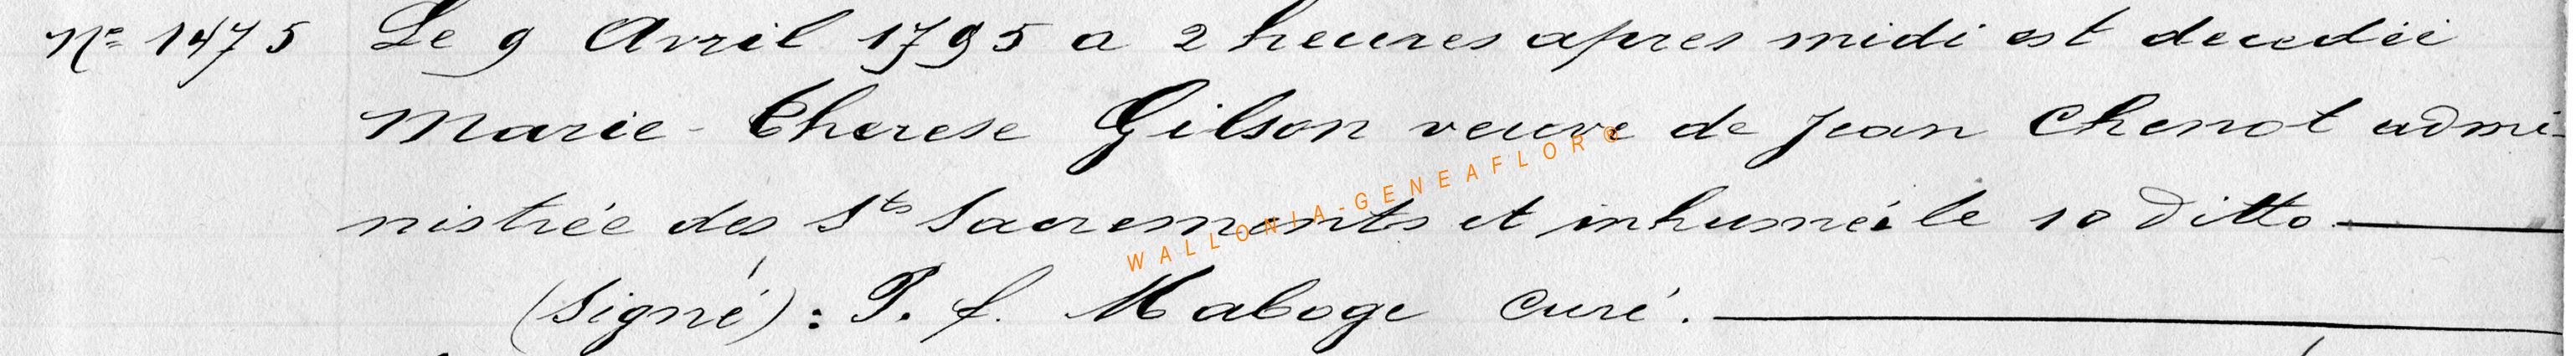 Nº 1475 Le 9 Avril 1795 a 2 heures apres midi est decedée
Marie-Therese Gilson veuve de Jean Chenot admi-
nistrée des Sts Sacrements et inhumée le 10 ditto
(signé) : P. f. Maboge Curé.
WALLONIA-GENEAFLOR©